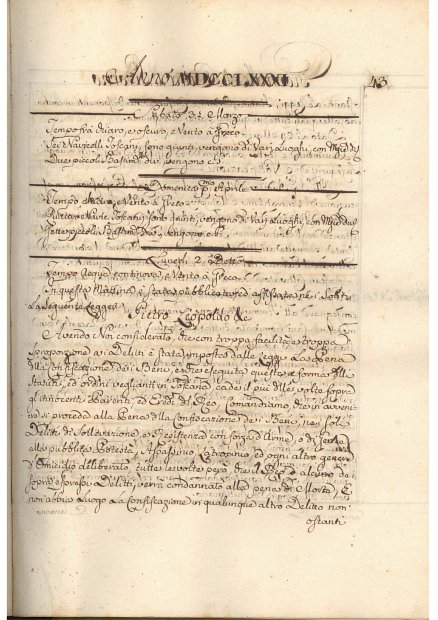 Anno MDCCLXXXI
43
Sabato 31. Marzo
Tempo frà chiaro, e oscuro, e Vento à
Sei Navicelli Toscani, sono giunti, vengono di Varj Luoghi, con
Due piccoli Bastim.
Domenica p.ª Aprile
Tempo chiaro, e Vento à
Quattro Navic. Toscani sono giunti, vengono da Varj Luoghi, con
piccoli Bastim.
Lunedi 2. Detto
Tempo continova, e Vento à
In questa Mattina è stata pubblicata, ed affissa ne i Soliti
La Seguente Legge
Pietro Leopoldo &c.
Avendo Noi considerato, che con troppa facilità, e troppa
Sproporzione a i Delitti è stata imposta dalle Leggi La Pena
della Confiscazione de i Beni, e che eseguita questa a forma dell
Statuti, ed ordini veglianti in Toscana, cade il più delle volte sopra
gl'innocenti Parenti, ed Eredi del Reo, Comandiamo, che in avveni=
re si proceda alla Pena della Confiscazione de i Beni, ne i Soli
Delitti di Sollevazione, e Resistenza con forza d'Arme, o di
alle pubbliche Potestà, Assassinio, Latrocinio, ed ogni altro genere
d'Omicidio deliberato, tutte le volte però, che il Reo d'alcuno de i
sopra espressi Delitti, verrà condannato alla pena di Morte, E
non abbia Luogo La Confiscazione in qualunque altro Delitto non
ostanti